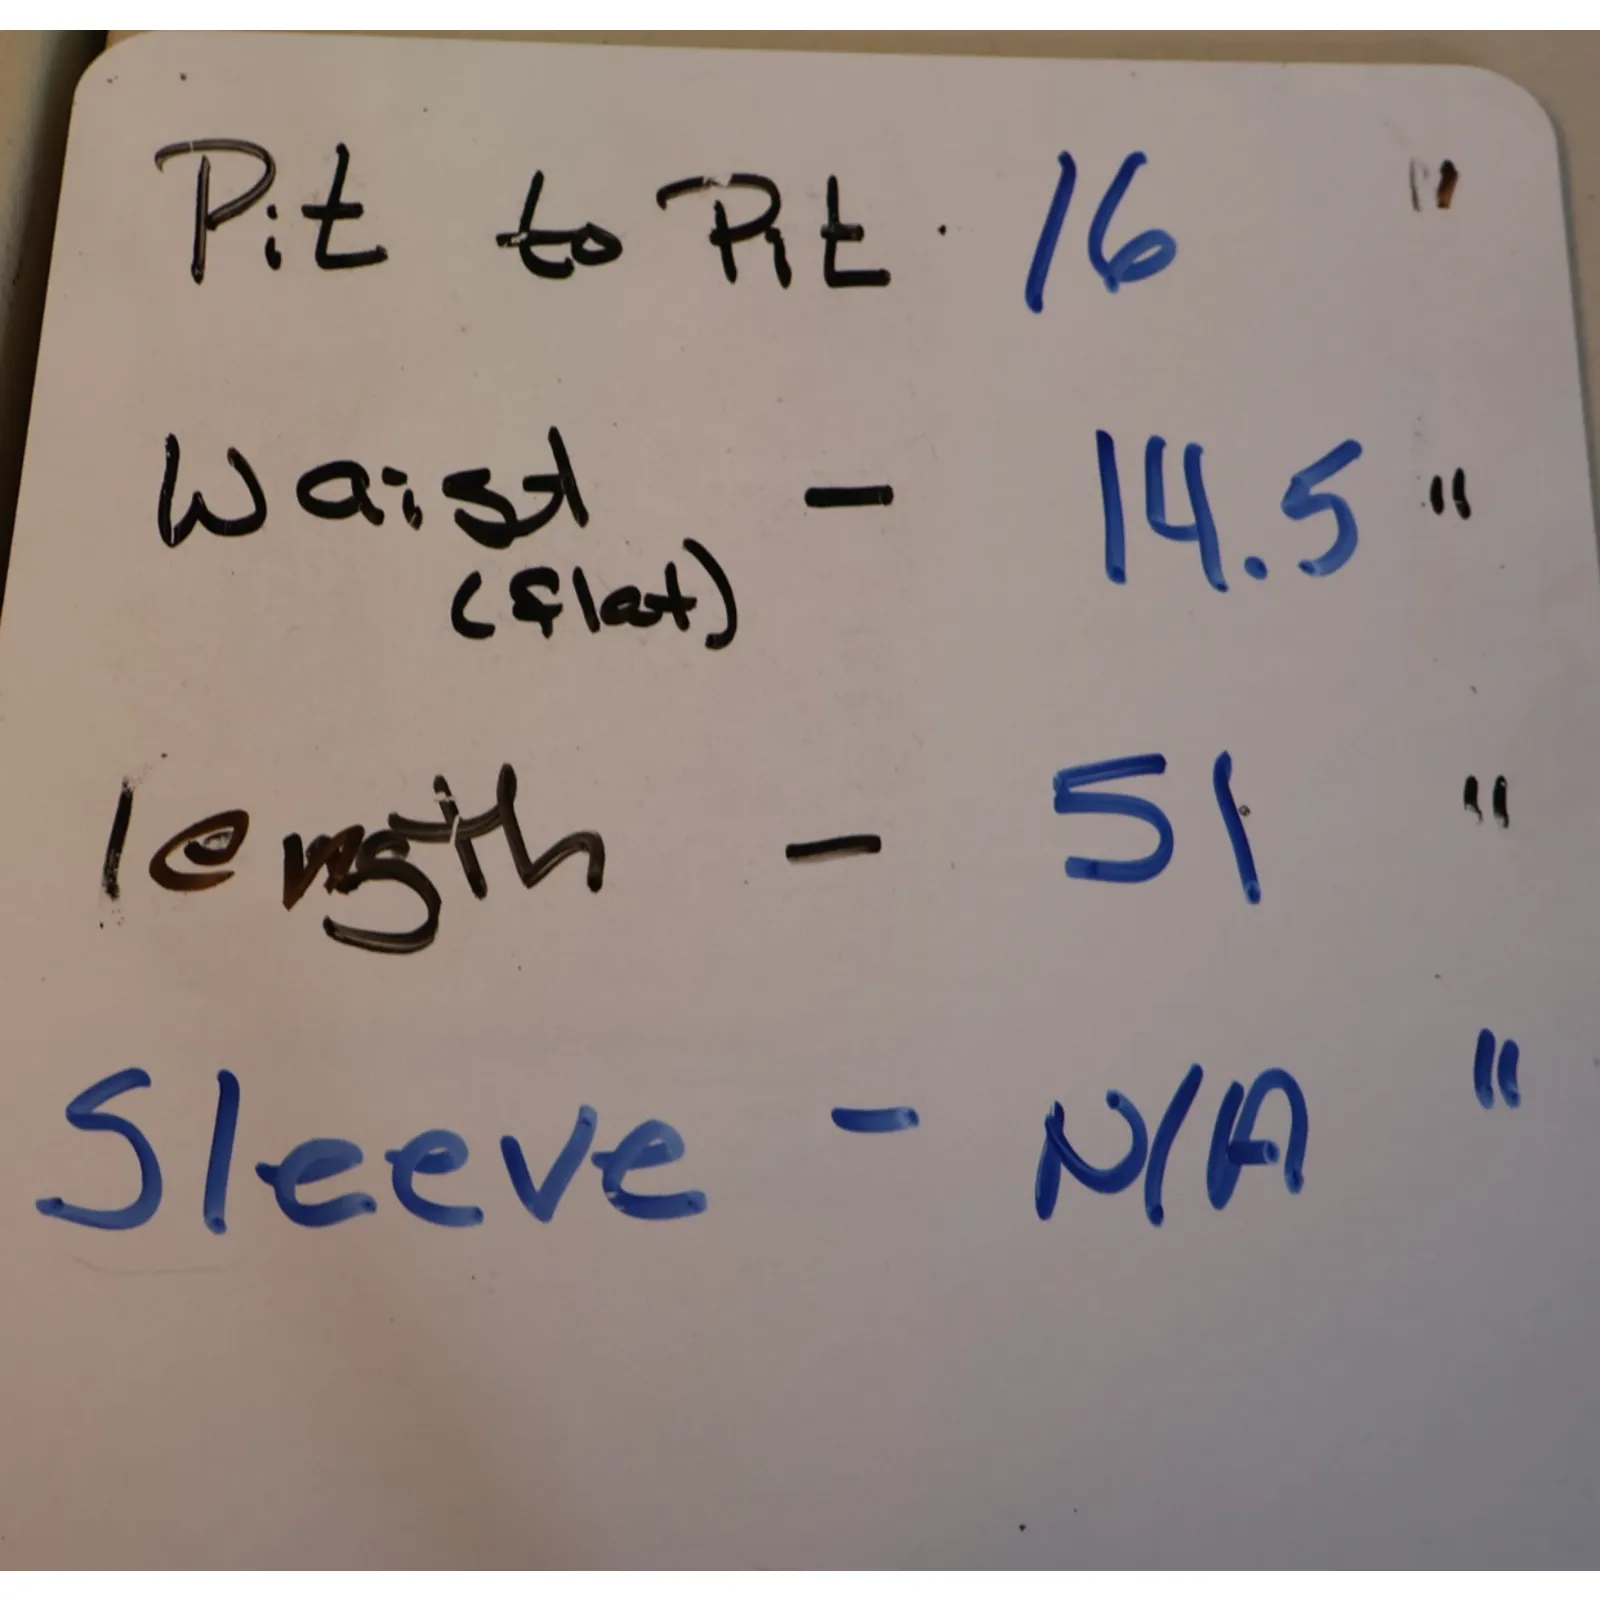 Pit to Pit · 16 "
Waist - 14.5 "
(flat)
length - 51 "
Sleeve - N/A "